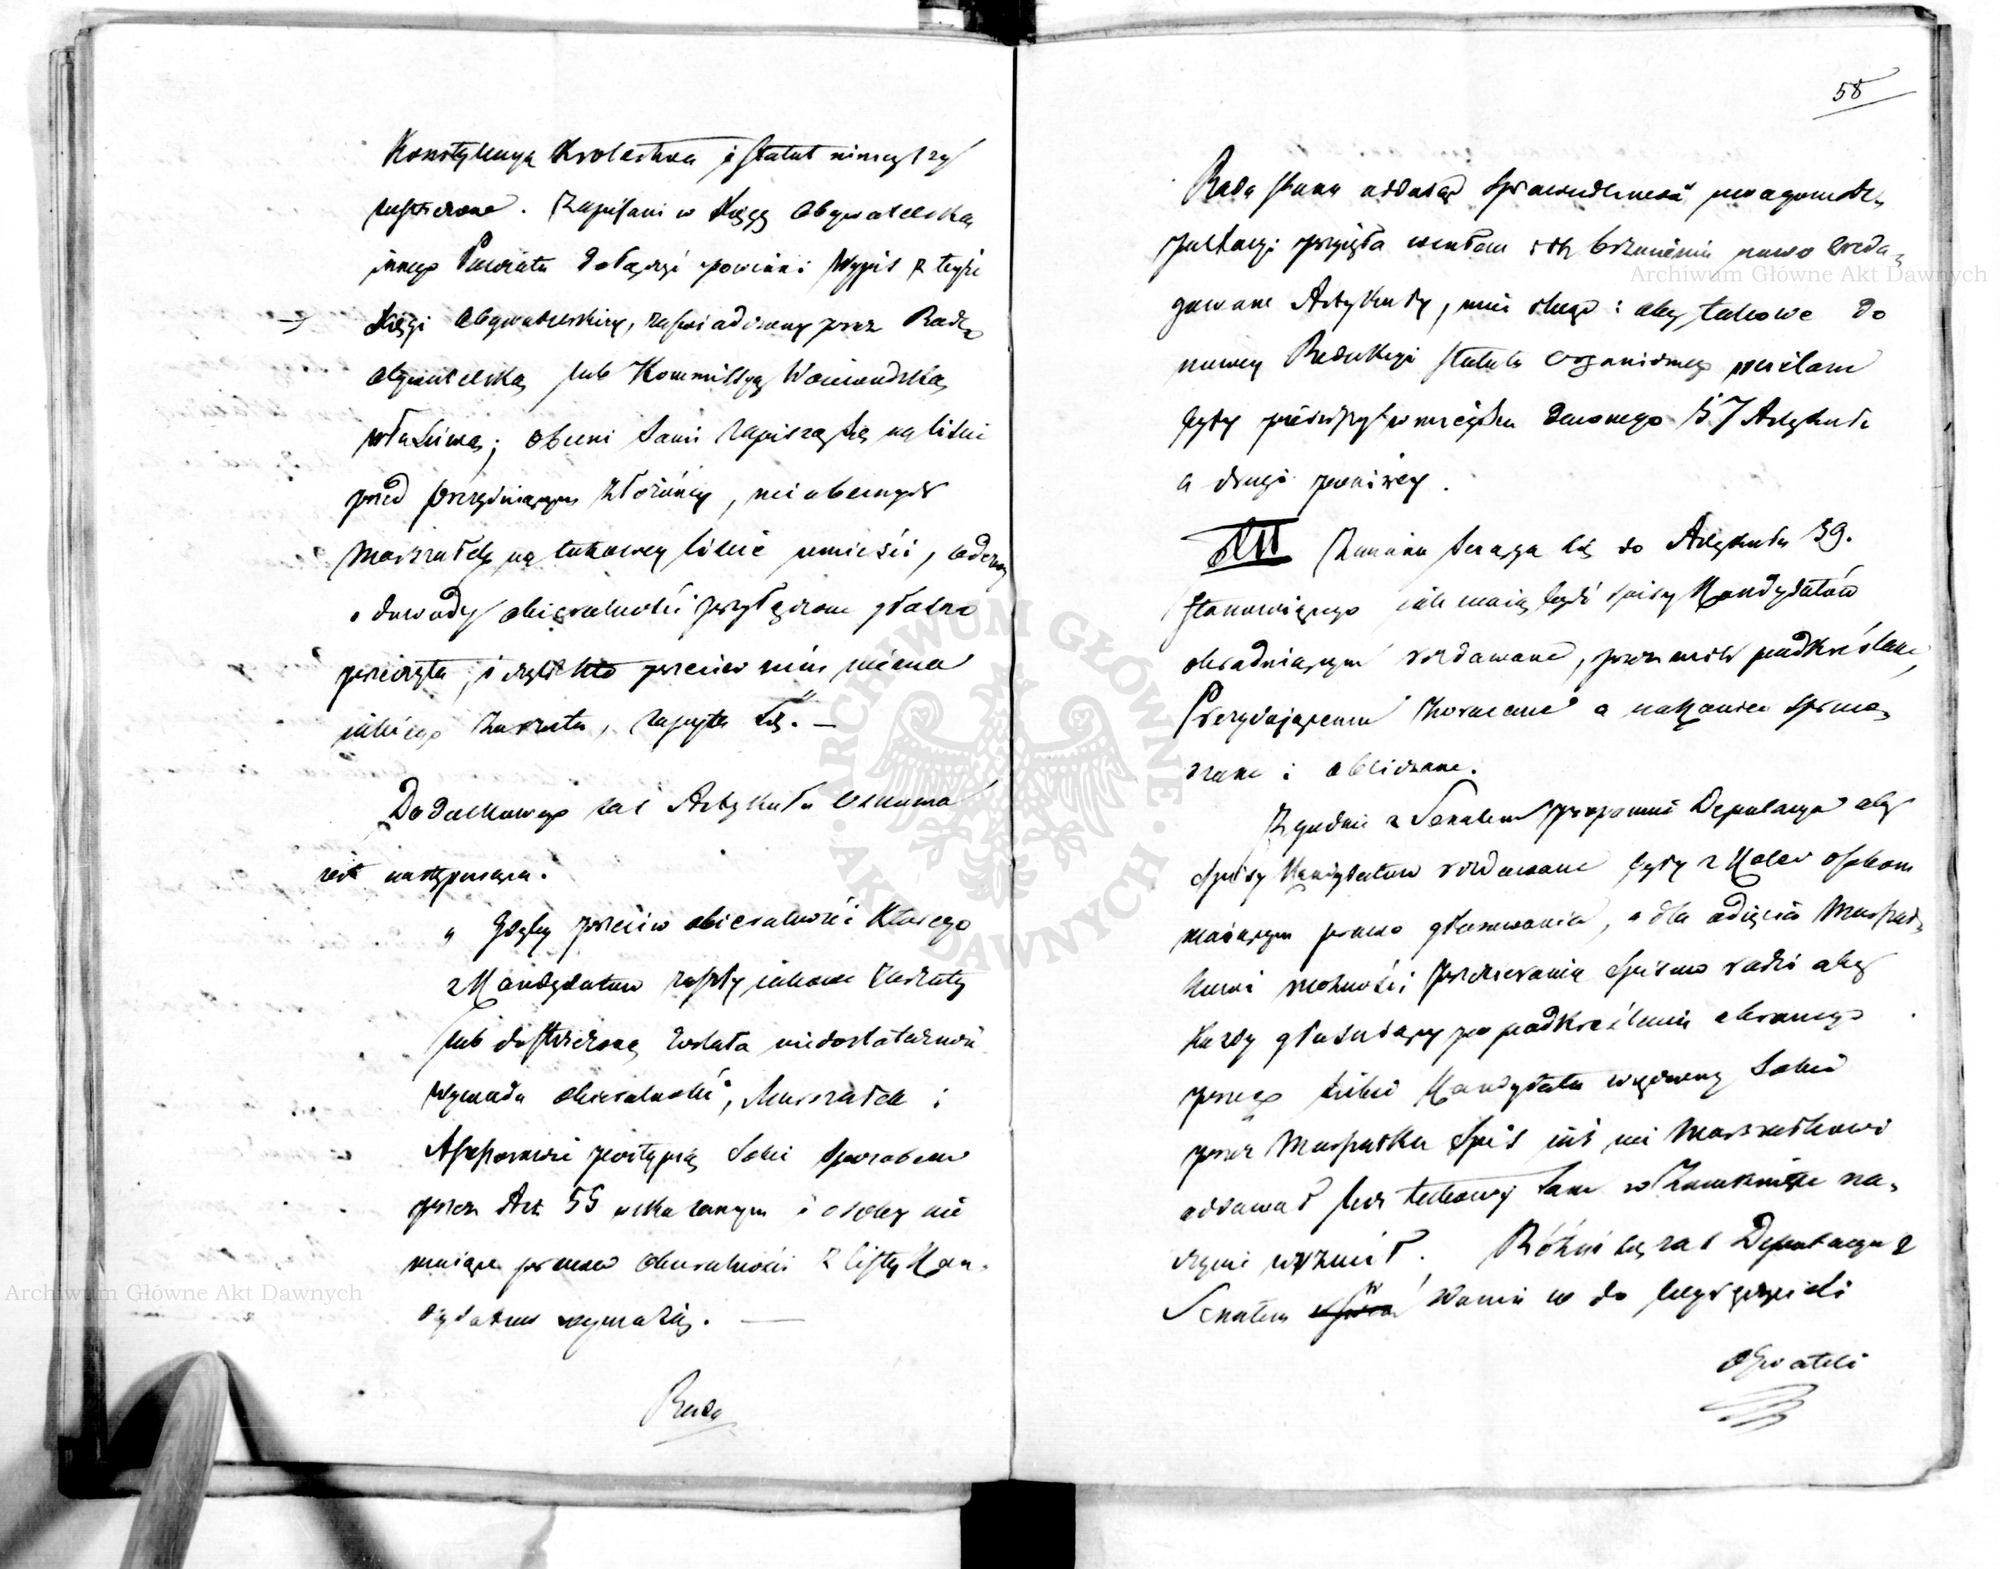 Konstytucyą Królestwa i Statut ninieyszy
zastrzeżone. Zapisani w Xięgę Obywatelską
innego Powiatu dołączyć powinni Wypis z teyże
Xięgi Obywatelskiey, zaświadczony przez Radę
Obywatelską lub Kommissyą Woiewodzką
właściwą; obecni sami zapiszą się na liście
przed złożoney, nieobecnych
Marszałek na takowey liście umieści,
dowody obieralności przyłączone głośno
przeczyta, i czyli kto przeciw nim niema
iakiego zarzutu, zapyta się. —
Dodatkowego zaś Artykułu osnowa
iest następuiąca.
„ Gdyby przeciw obieralności którego
z Kandydatów zaszły iakowe zarzuty
lub dostrzeżoną została niedostateczność
wywodu obieralności, Marszałek i
Assessorowie postąpią sobie sposobem
przez Art 55 wskazanym i osoby nie
maiące prawa obieralności z listy Kan-
dydatów wymażą. —
Rada
58
Rada Stanu oddaiąc sprawiedliwość uwagom De-
putacyi przyięła wcałem ich brzmieniu nowo zreda-
gowane Artykuły, wnosi aby takowe do
nowey Redakcyi Statutu Organicznego wcielone
były pierwszy w mieyscu dawnego 57 Artykułu
a drugi poniżey.
XII Zmiana ściąga się do Artykułu 39.
stanowiącego iak maią bydź spisy Kandydatów
obraduiącym rozdawane, przez nich podkreślane,
Prezyduiącemu zwracane a nakoniec spraw-
dzane i obliczane.
Zgodnie z Senatem proponuie Deputacya aby
spisy Kandydatów rozdawane były z kolei osobom
maiącym prawo głosowania, a dla odięcia Marszał-
kowi możności przezierania spisów radzi aby
każdy głosuiący po podkreśleniu obranego
przez siebie Kandydata wręczony sobie
przez Marszałka spis iuż nie Marszałkowi
oddawał lecz takowy sam w zamknięte na-
czynie wrzucił. Różni się zaś Deputacya z
Senatem w zdaniu co do tego ieżeli
Obywateli